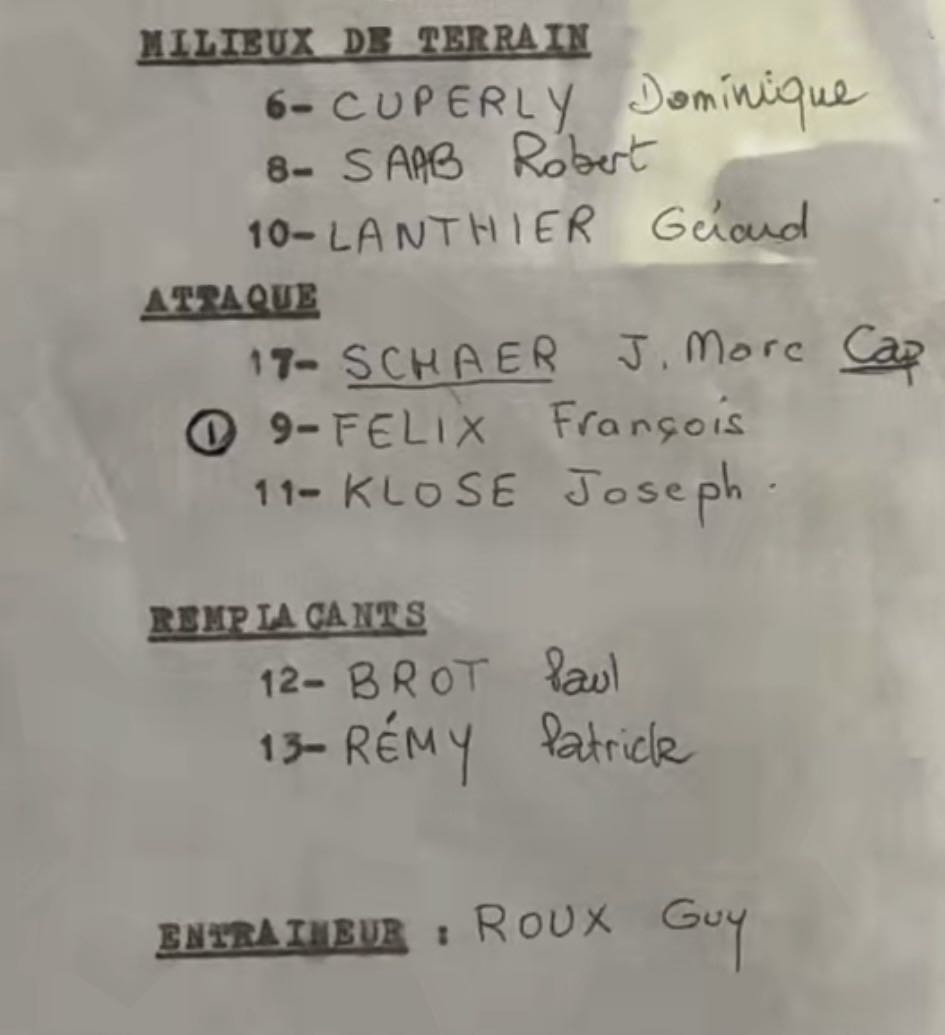 MILIEUX DE TERRAIN
6- CUPERLY Dominique
8- SAAB Robert
10- LANTHIER Gérard
ATTAQUE
17- SCHAER J. Marc Cap
① 9- FELIX François
11- KLOSE Joseph.
REMPLACANTS
12- BROT Paul
13- RÉMY Patrick
ENTRAINEUR : ROUX Guy